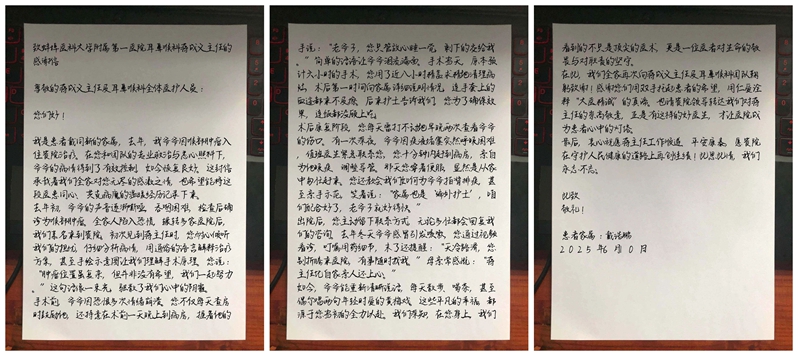 致蚌埠医科大学附属第一医院耳鼻喉科蒋成义主任的
感谢信
尊敬的蒋成义主任及耳鼻喉科全体医护人员：
您们好！
我是患者戴同新的家属，去年，我爷爷因喉部肿瘤入
住贵院治疗，在您和团队的专业救治与悉心照料下，
爷爷的病情得到了有效控制，如今恢复良好。这封信
承载着我们全家对您无尽的感激之情，也希望能将这
段医患同心、共克病魔的温暖经历记录下来。
去年初，爷爷的声音逐渐嘶哑，吞咽困难，检查后确
诊为喉部肿瘤，全家人陷入恐慌。辗转多家医院后，
我们慕名来到贵院。初次见到蒋主任时，您耐心倾听
我们的担忧，仔细分析病情，用通俗的语言解释治疗
方案，甚至手绘示意图让我们理解手术原理。您说：
“肿瘤位置虽复杂，但并非没有希望，我们一起努力
。”这句话像一束光，驱散了我们心中的阴霾。
手术前，爷爷因恐惧多次情绪崩溃，您不仅每天查房
时鼓励他，还特意在术前一天晚上到病房，握着他的
手说：“老爷子，您只管放心睡一觉，剩下的交给我
。”简单的话语让爷爷泪流满面。手术当天，原本预
计六小时的手术，您用了近八小时精益求精地清理病
灶，术后第一时间向家属详细说明情况，连手套上的
血迹都来不及擦。后来护士告诉我们，您为了确保效
果，连饭都没顾上吃。
术后康复阶段，您每天雷打不动地早晚两次查看爷爷
的伤口。有一次深夜，爷爷因痰液堵塞突然呼吸困难
，值班医生紧急联系您，您十分钟内赶到病房，亲自
为他吸痰、调整导管，那天您穿着便服，显然是从家
中匆忙赶来。您还教会我们如何为爷爷拍背排痰，甚
至亲手示范，笑着说：“家属也是‘编外护士’，咱
们配合好了，老爷子就好得快。”
出院后，您主动留下联系方式，无论多忙都会回复我
们的咨询。去年冬天爷爷感冒引发咳嗽，您通过视频
看诊，叮嘱用药细节，末了还提醒：“天冷路滑，您
别折腾来医院，有事随时找我。”母亲常感慨：“蒋
主任比自家亲人还上心。”
如今，爷爷能重新清晰说话，每天散步、喝茶，甚至
偶尔唱两句年轻时爱的黄梅戏。这些平凡的幸福，都
源于您当初的全力以赴。我们深知，在您身上，我们
看到的不只是顶尖的医术，更是一位医者对生命的敬
畏与对职责的坚守。
在此，我们全家再次向蒋成义主任及耳鼻喉科团队鞠
躬致谢！感谢您们用双手托起患者的希望，用仁爱诠
释“大医精诚”的真谛，也请贵院领导转达我们对蒋主
任的崇高敬意，正是有这样的好医生，才让医院成
为患者心中的灯塔。
最后，衷心祝愿蒋主任工作顺遂、平安康泰，愿贵院
在守护人民健康的道路上再创佳绩！此恩此情，我们
永志不忘。
此致
敬礼！
患者家属：戴浩鹏
2025年6月10日